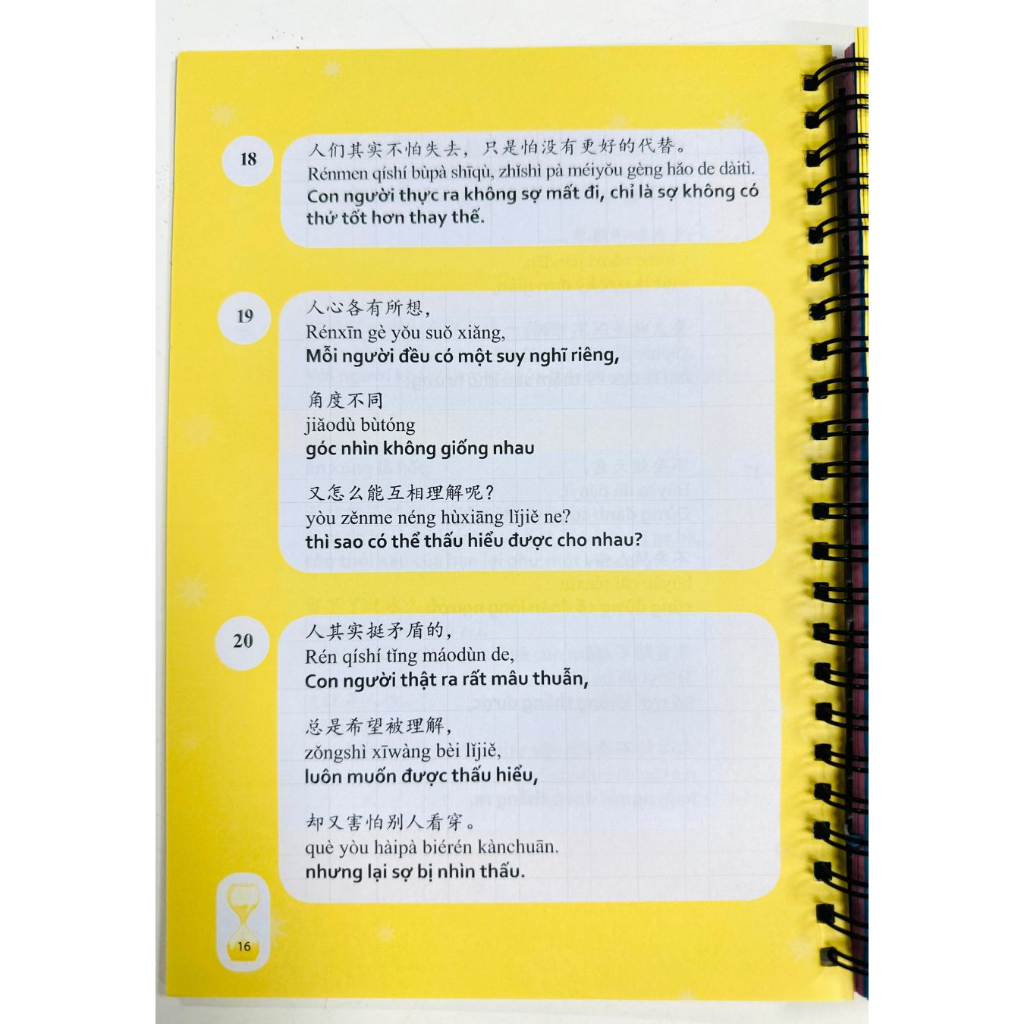 18
人们其实不怕失去，只是怕没有更好的代替。
Rénmen qíshí bùpà shīqù, zhǐshì pà méiyǒu gèng hǎo de dàitì.
Con người thực ra không sợ mất đi, chỉ là sợ không có
thứ tốt hơn thay thế.
19
人心各有所想，
Rénxīn gè yǒu suǒ xiǎng,
Mỗi người đều có một suy nghĩ riêng,
角度不同
jiǎodù bùtóng
góc nhìn không giống nhau
又怎么能互相理解呢？
yòu zěnme néng hùxiāng lǐjiě ne?
thì sao có thể thấu hiểu được cho nhau?
20
人其实挺矛盾的，
Rén qíshí tǐng máodùn de,
Con người thật ra rất mâu thuẫn,
总是希望被理解，
zǒngshì xīwàng bèi lǐjiě,
luôn muốn được thấu hiểu,
却又害怕别人看穿。
què yòu hàipà biérén kànchuān.
nhưng lại sợ bị nhìn thấu.
16